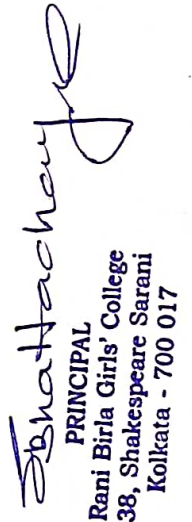 SBhattacharya
PRINCIPAL
Rani Birla Girls' College
38, Shakespeare Sarani
Kolkata - 700 017